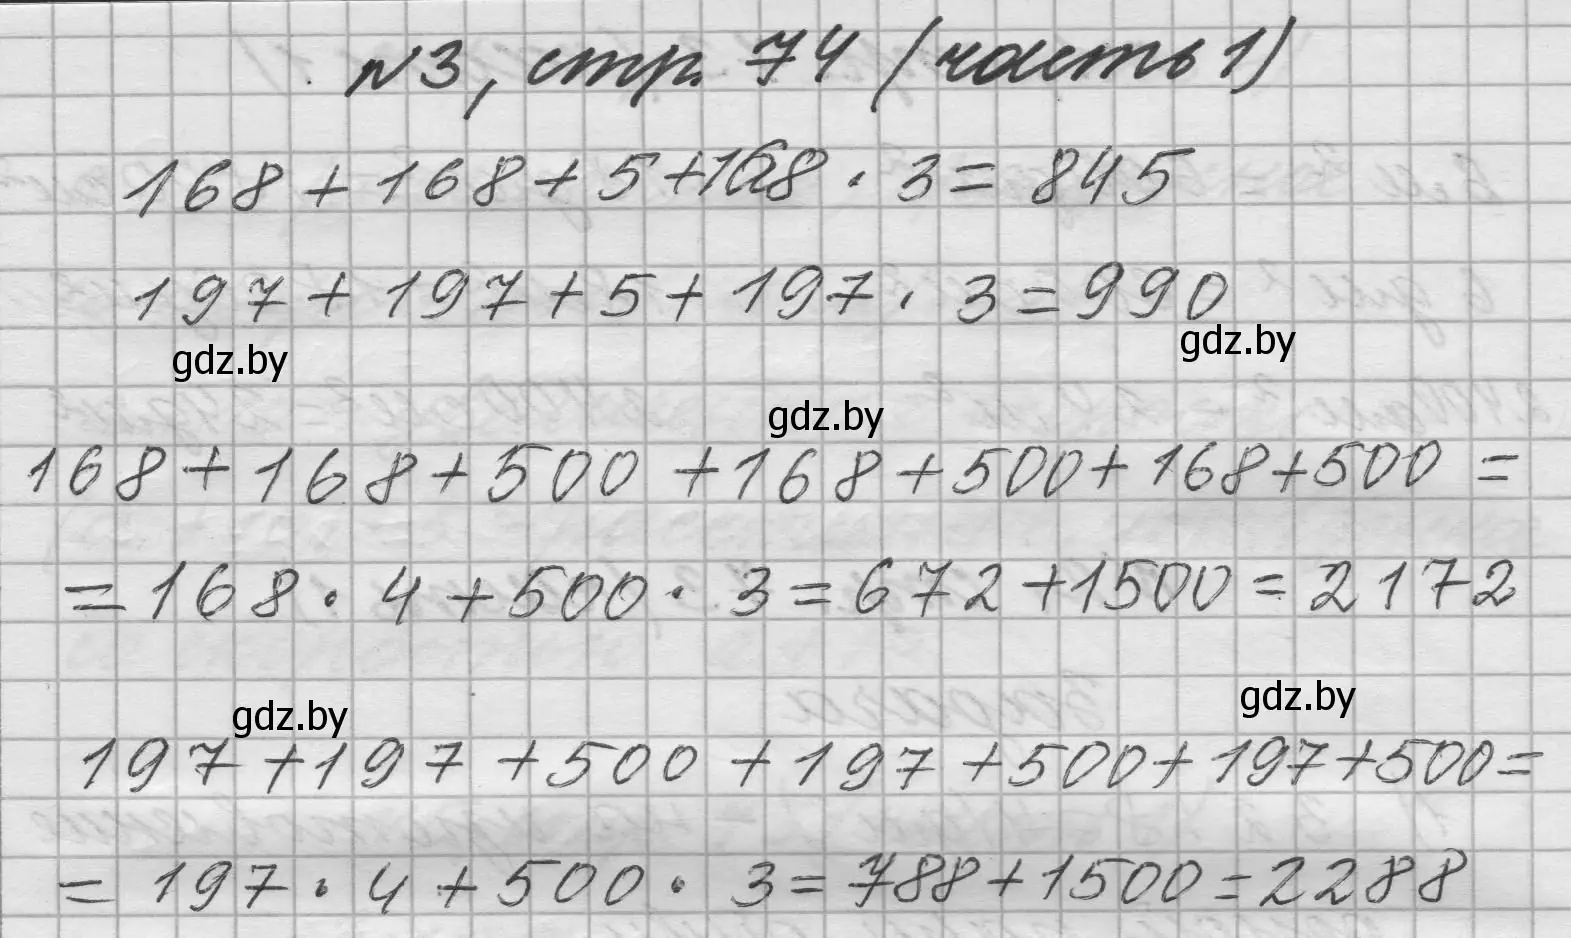 №3, стр. 74 (часть 1)
168 + 168 + 5 + 168 · 3 = 845
197 + 197 + 5 + 197 · 3 = 990
gdz.by
gdz.by
gdz.by
168 + 168 + 500 + 168 + 500 + 168 + 500 =
= 168 · 4 + 500 · 3 = 672 + 1500 = 2172
gdz.by
gdz.by
197 + 197 + 500 + 197 + 500 + 197 + 500 =
= 197 · 4 + 500 · 3 = 788 + 1500 = 2288